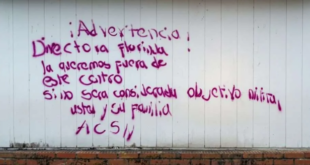 ¡Advertencia!
Directora florinda
la queremos fuera de
este centro
si no sera considerada objetivo militar
usted y su familia
ACSN